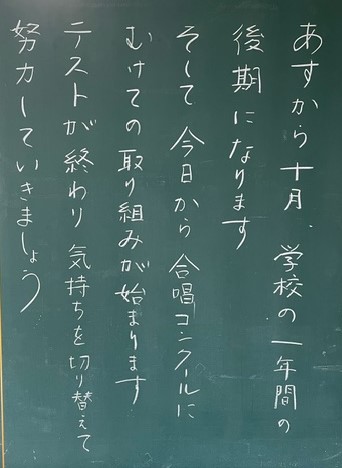 あすから十月、学校の一年間の
後期になります
そして今日から合唱コンクールに
むけての取り組みが始まります
テストが終わり気持ちを切り替えて
努力していきましょう